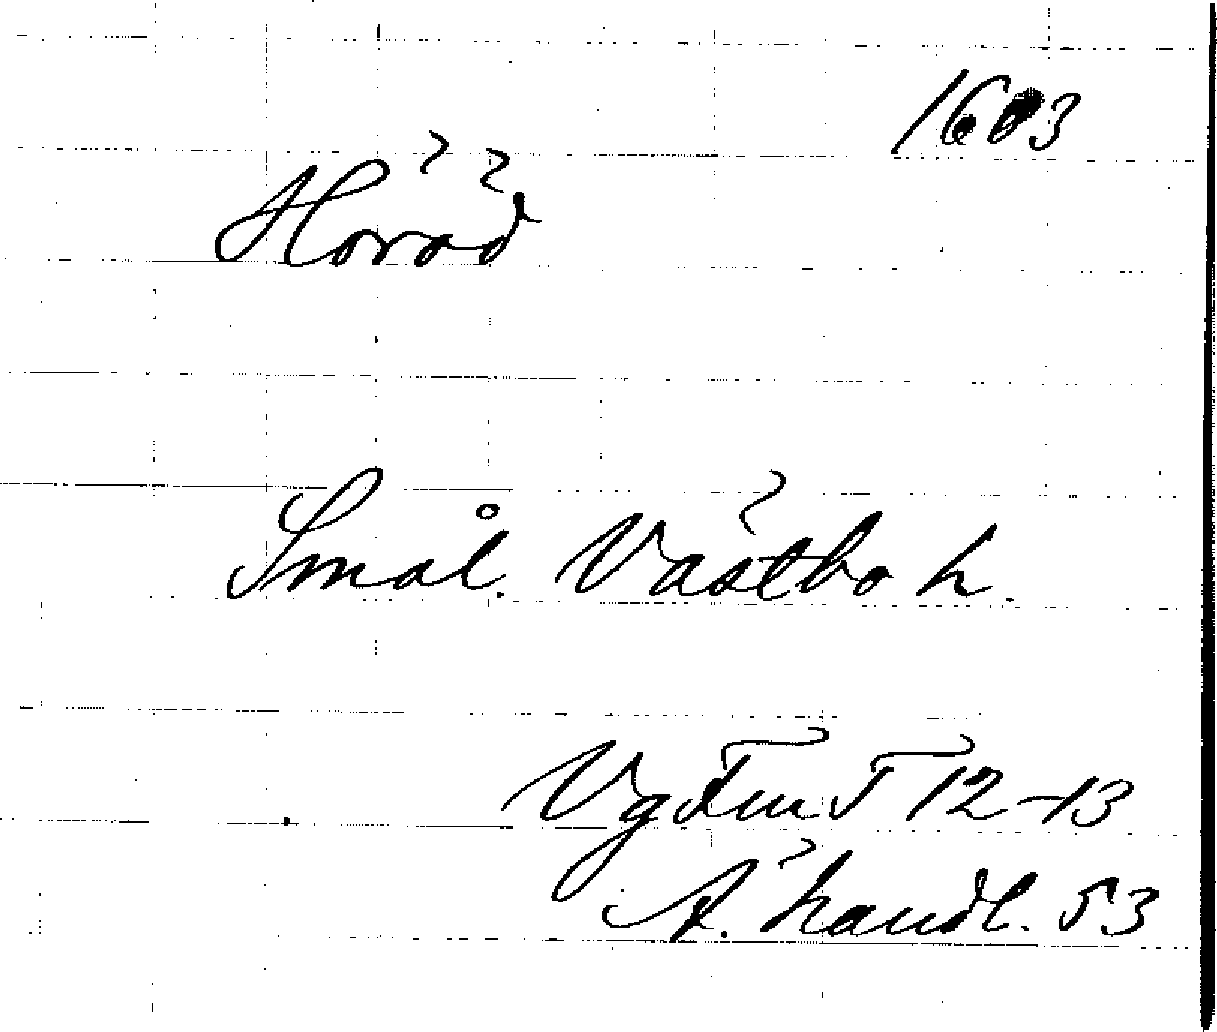 1603
Höröd
Smål. Västbo h.
Vg Fm T 12-13
Ä. handl. 53